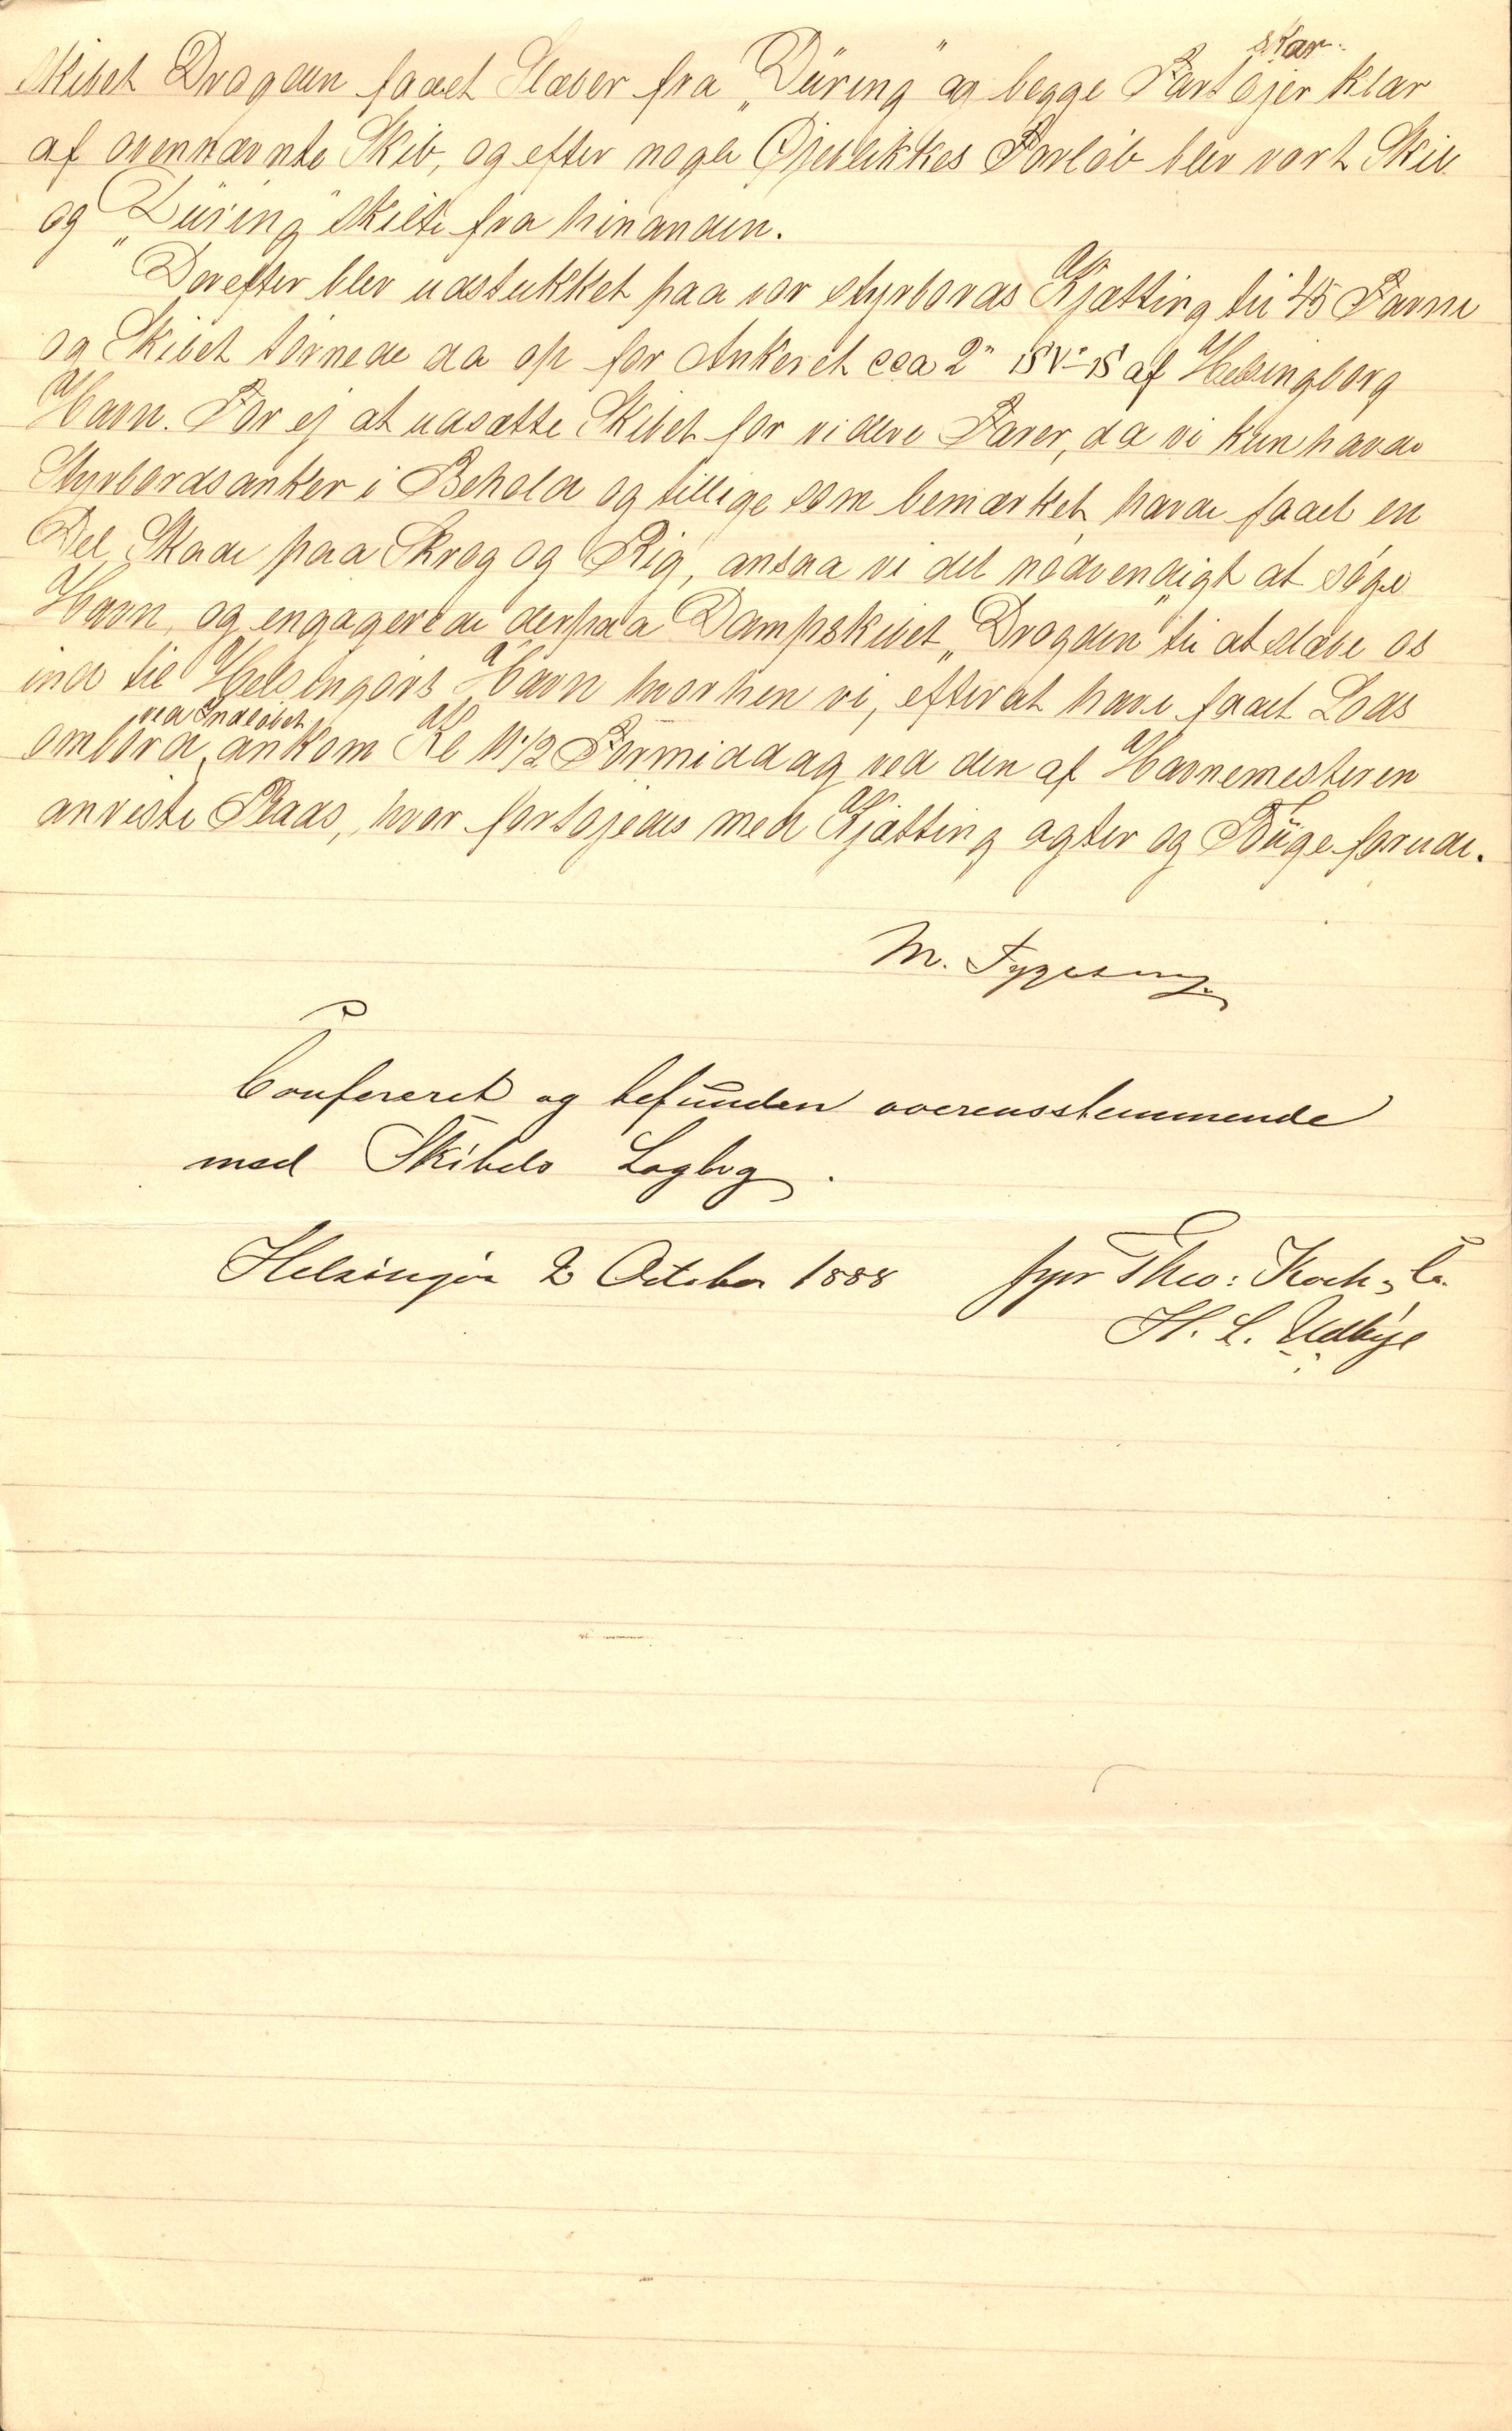 skar
skibet Drogden faaet Slæber fra „Düring" og begge Fartøjer klar
af ovennævnte Skib, og efter nogle Øjeblikkes Forløb blev vort Skib
og „Düring" skilte fra hinanden.
Derefter blev udstukket paa vor styrbords Kjætting til 45 Favne
og Skibet törnede da op for Ankeret cca 2" SV-S af Helsingborg
Havn. For ej at udsætte Skibet for videre Farer, da vi kun havde
Styrbordsanker i Behold og tillige som bemærket, havde faaet en
Del Skade paa Skrog og Rig, ansaa vi det nødvendigt at søge
Havn, og engagerede derpaa Dampskibet „Drogden" til at slæbe os
ind til Helsingørs Havn hvorhen vi, efterat have faaet Lods
ved Indløbet
ombord, ankom Kl 11 1/2 Formiddag ved den af Havnemesteren
anviste Plads, hvor fortøjedes med Kjætting agter og Bøige forude.
M. Tygesen
Confereret og befunden overensstemmende
med Skibets Logbog.
Helsingør 2 October 1888 fypr Theo: Koch & Co.
H. L. Udbye